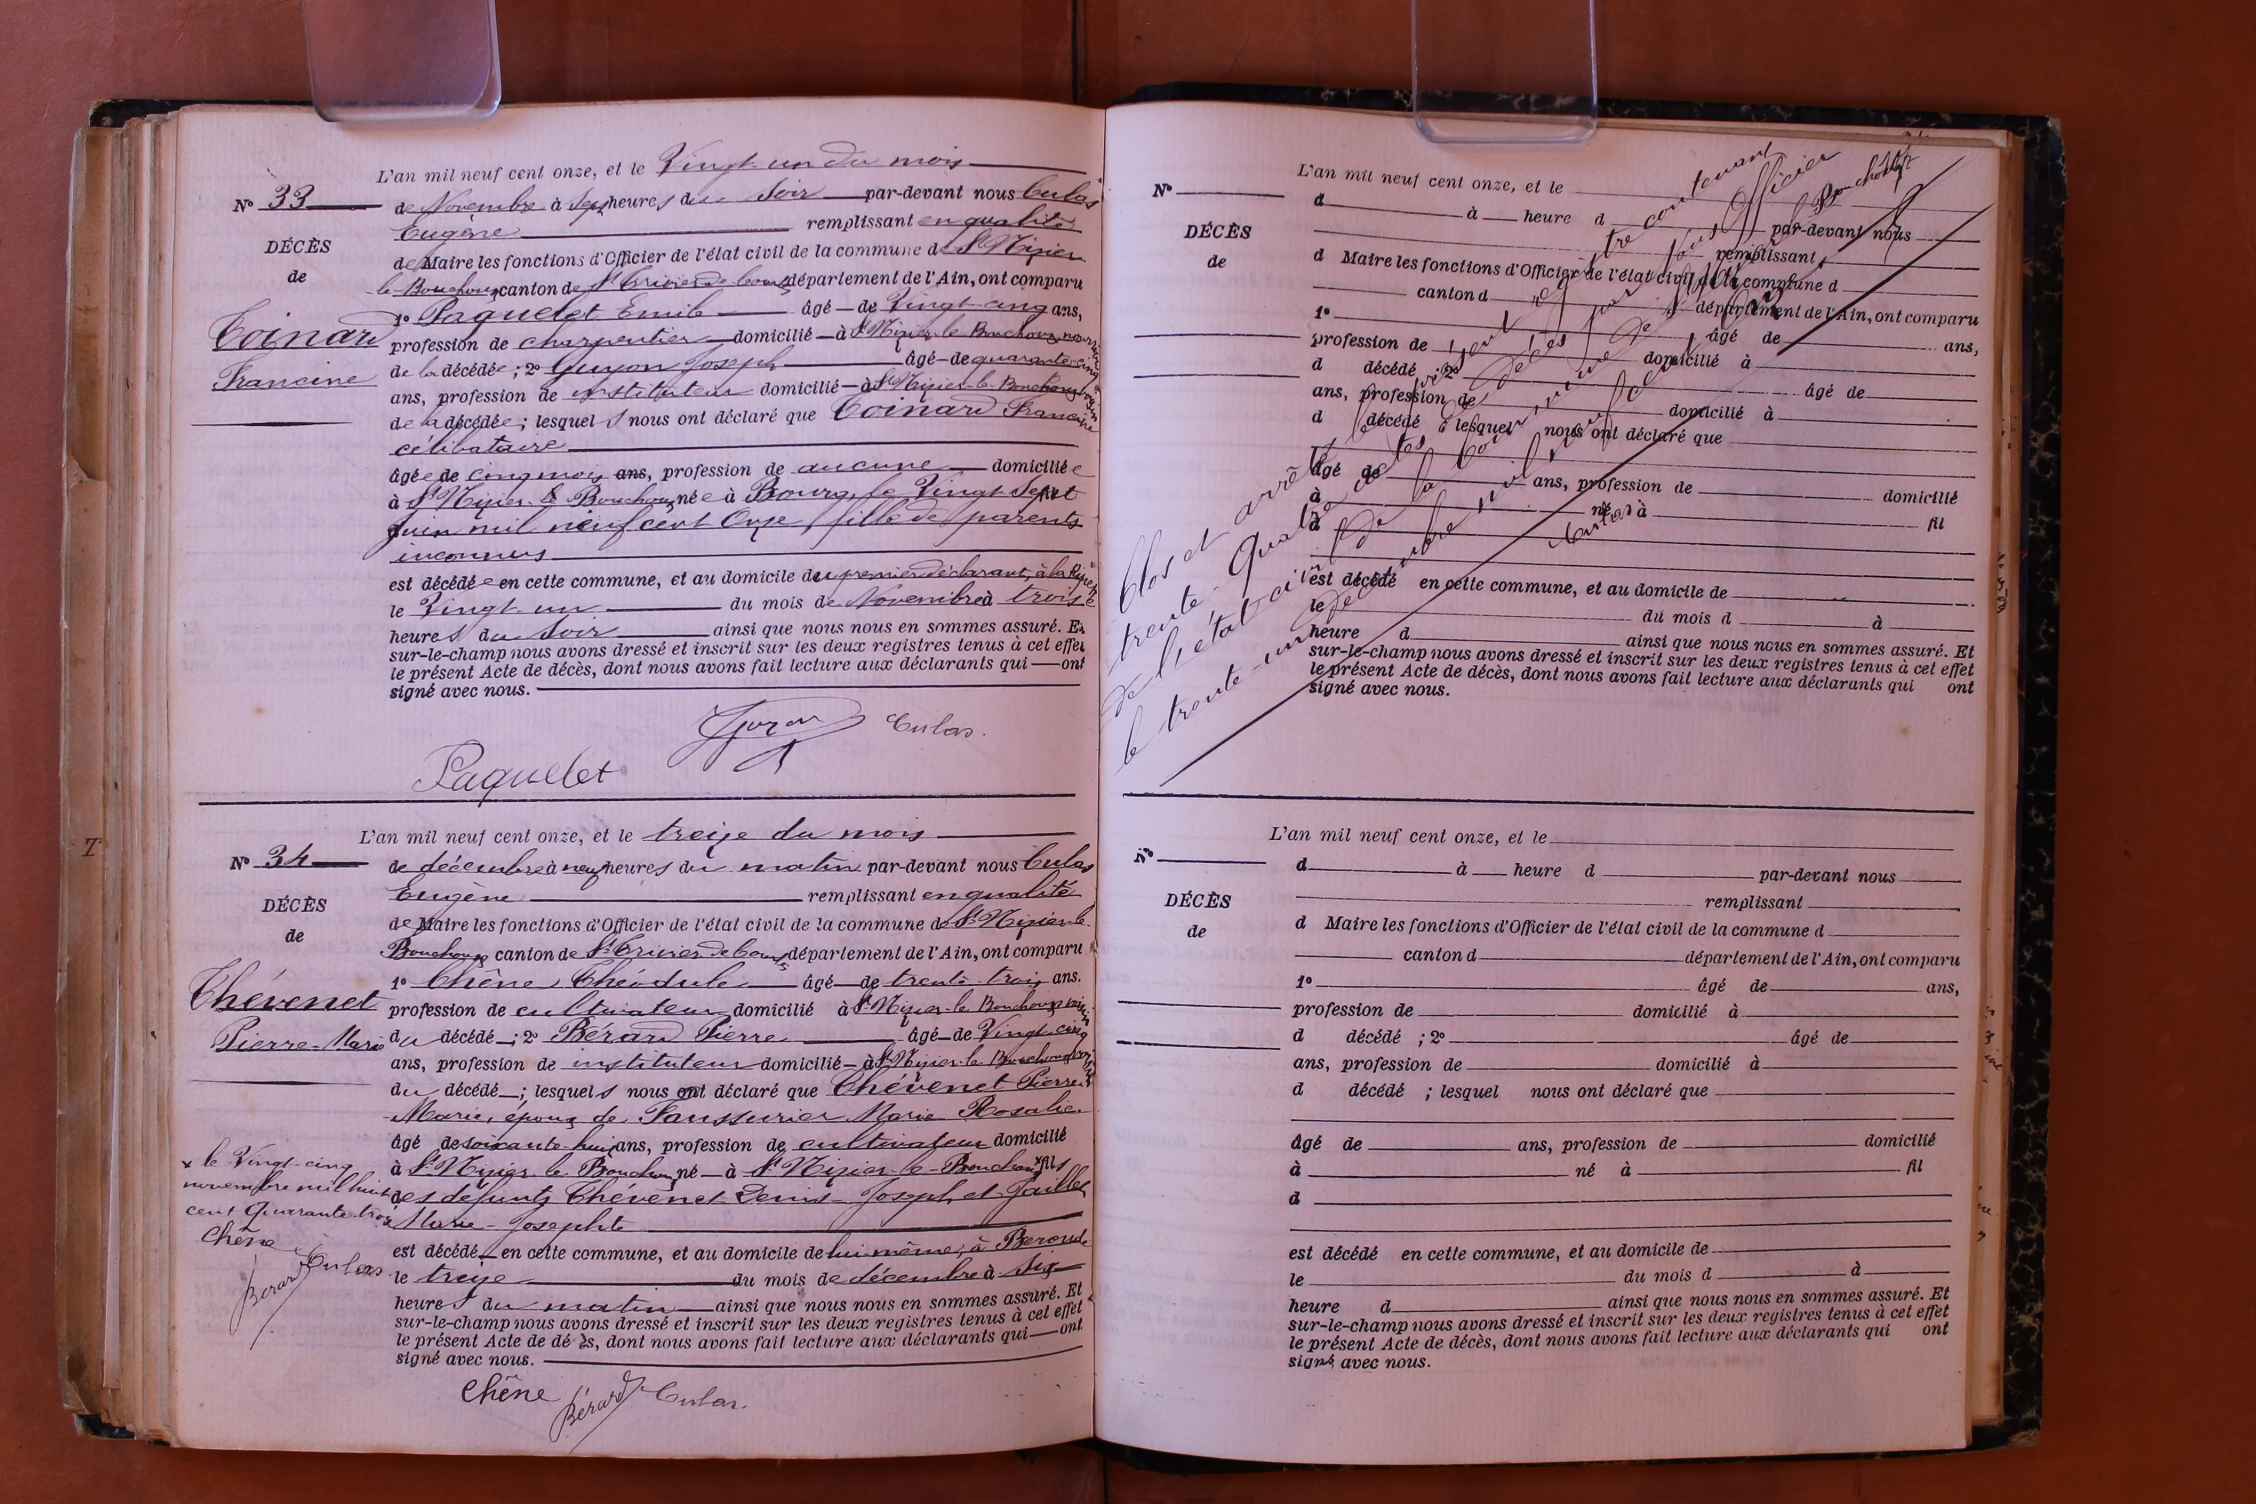 L'an mil neuf cent onze, et le Vingt-un du mois
N° 33
de Novembre à Sept heures du Soir par-devant nous Culas
Eugène remplissant en qualité
DÉCÈS
de Maire les fonctions d'Officier de l'état civil de la commune de St Nizier
de
le Bouchoux canton de St Trivier de Courtes département de l'Ain, ont comparu
1° Paquelet Emile âgé de Vingt-cinq ans,
Coinard
profession de charpentier domicilié à St Nizier-le-Bouchoux nourricier
Francine
de la décédée ; 2° Guyon Joseph âgé de quarante-cinq
ans, profession de instituteur domicilié à St Nizier-le-Bouchoux voisin
de la décédée ; lesquels nous ont déclaré que Coinard Francine
célibataire
âgée de cinq mois ans, profession de aucune domiciliée
à St Nizier-le-Bouchoux née à Bourg, le Vingt Sept
Juin mil neuf cent Onze, fille de parents
inconnus
est décédée en cette commune, et au domicile du premier déclarant, à la
le Vingt-un du mois de Novembre à trois
heures du Soir ainsi que nous nous en sommes assuré. Et
sur-le-champ nous avons dressé et inscrit sur les deux registres tenus à cet effet
le présent Acte de décès, dont nous avons fait lecture aux déclarants qui ont
signé avec nous.
Guyon Culas.
Paquelet
L'an mil neuf cent onze, et le treize du mois
N° 34
de décembre à neuf heures du matin par-devant nous Culas
Eugène remplissant en qualité
DÉCÈS
de Maire les fonctions d'Officier de l'état civil de la commune de St Nizier-le-
de
Bouchoux canton de St Trivier de Courtes département de l'Ain, ont comparu
1° Chêne Théodule âgé de trente-trois ans.
Thévenet
profession de cultivateur domicilié à St Nizier-le-Bouchoux voisin
Pierre-Marie
du décédé ; 2° Bérard Pierre âgé de Vingt-cinq
ans, profession de instituteur domicilié à St Nizier-le-Bouchoux voisin
du décédé ; lesquels nous ont déclaré que Thévenet Pierre
Marie, époux de Faussurier Marie Rosalie
âgé de soixante-huit ans, profession de cultivateur domicilié
à St Nizier-le-Bouchoux né à St Nizier-le-Bouchoux x fils
x le Vingt-cinq
novembre mil huit
cent quarante-trois
Chêne
Bérard Culas
des défunts Thévenet Denis-Joseph et Jaillet
Marie-Josephte
est décédé en cette commune, et au domicile de lui-même, à Beroude
le treize du mois de décembre à Six
heures du matin ainsi que nous nous en sommes assuré. Et
sur-le-champ nous avons dressé et inscrit sur les deux registres tenus à cet effet
le présent Acte de dé ès, dont nous avons fait lecture aux déclarants qui ont
signé avec nous.
Chêne Bérard Culas.
L'an mil neuf cent onze, et le
N°
d à heure d par-devant nous
remplissant
DÉCÈS
d Maire les fonctions d'Officier de l'état civil de la commune d
de
canton d département de l'Ain, ont comparu
1° âgé de ans,
profession de domicilié à
d décédé ; 2° âgé de
ans, profession de domicilié à
d décédé ; lesquel nous ont déclaré que
âgé de ans, profession de domicilié
à né à fil
d
est décédé en cette commune, et au domicile de
le du mois d à
heure d ainsi que nous nous en sommes assuré. Et
sur-le-champ nous avons dressé et inscrit sur les deux registres tenus à cet effet
le présent Acte de décès, dont nous avons fait lecture aux déclarants qui ont
signé avec nous.
Clos et arrêté le présent registre contenant
trente-quatre actes de décès par Nous Officier
de l'état civil de la Commune de St Nizier le Bouchoux
le trente-un décembre mil neuf cent onze
Culas
L'an mil neuf cent onze, et le
N°
d à heure d par-devant nous
remplissant
DÉCÈS
d Maire les fonctions d'Officier de l'état civil de la commune d
de
canton d département de l'Ain, ont comparu
1° âgé de ans,
profession de domicilié à
d décédé ; 2° âgé de
ans, profession de domicilié à
d décédé ; lesquel nous ont déclaré que
âgé de ans, profession de domicilié
à né à fil
d
est décédé en cette commune, et au domicile de
le du mois d à
heure d ainsi que nous nous en sommes assuré. Et
sur-le-champ nous avons dressé et inscrit sur les deux registres tenus à cet effet
le présent Acte de décès, dont nous avons fait lecture aux déclarants qui ont
signé avec nous.